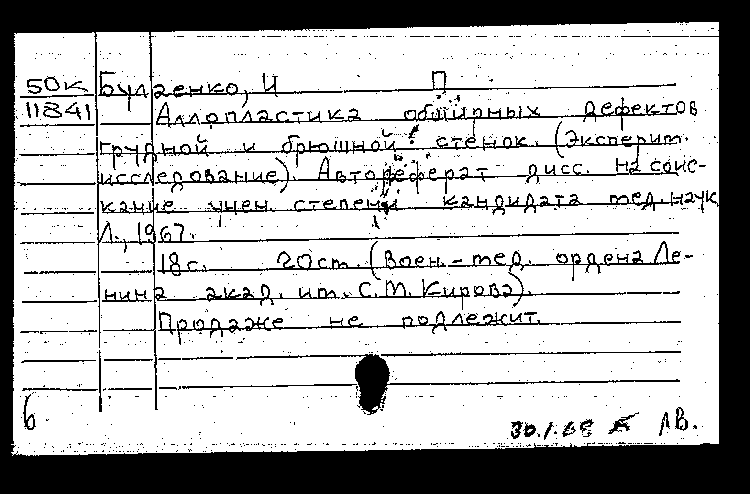 50к Булаенко, И П
11841 Аллопластика обширных дефектов
грудной и брюшной стенок. (Эксперим.
исследование). Автореферат дисс. на соис-
кание учен. степени кандидата мед. наук
Л., 1967.
18с. 20см. (Воен.-мед. ордена Ле-
нина акад. им. С.М. Кирова).
Продаже не подлежит.
б.
30.1.68 ЛВ.